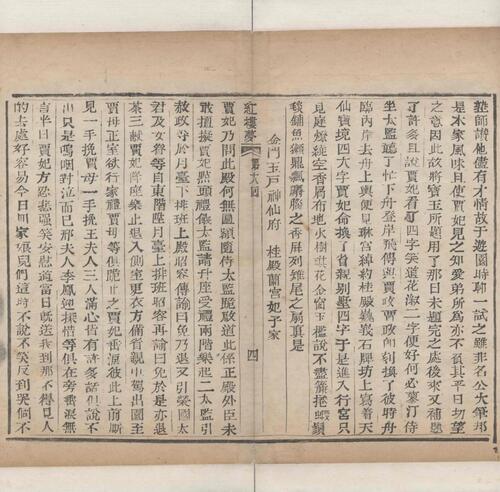 塾師讚他儘有才情故于遊園時聊一試之雖非名公大筆却
是本家風味且使賈妃見之知愛弟所為亦不負其平日切望
之意因此故將寶玉所題用了那日未題完之處後來又補題
了許多且說賈妃看了四字笑道花漵二字便好何必蓼汀侍
坐太監聽了忙下舟登岸飛傳與賈政賈政即刻換了彼時舟
臨內岸去舟上輿便見琳宮綽約桂殿巍峩石牌坊上寫着天
仙寶境四大字賈妃命換了省親別墅四字于是進入行宮只
見庭燎繞空香屑布地火樹琪花金窗玉檻說不盡簾捲蝦鬚
毯鋪魚獺鼎飄麝腦之香屏列雉尾之扇真是
金門玉戶神仙府　桂殿蘭宮妃子家
紅樓夢　第十八回　四
賈妃乃問此殿何無匾額隨侍太監跪啟道此係正殿外臣未
敢擅擬賈妃點頭禮儀太監請升座受禮兩階樂起二太監引
赦政等於月臺下排班上殿昭容傳諭曰免乃退又引榮國太
君及女眷等自東階陞月臺上排班昭容再諭曰免於是亦退
茶三獻賈妃降座樂止退入側室更衣方備省親車駕出園至
賈母正室欲行家禮賈母等俱跪止之賈妃垂淚彼此上前厮
見一手挽賈母一手挽王夫人三人滿心皆有許多話但說不
出只是嗚咽對泣而已邢夫人李鳳迎探惜等俱在旁垂淚無
言半日賈妃方忍悲強笑安慰道當日既送我到那不得見人
的去處好容易今日回家娘兒們這時不說不笑反到哭個不